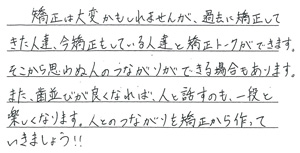 矯正は大変かもしれませんが、過去に矯正して
きた人達、今矯正もしている人達と矯正トークができます。
そこから思わぬ人のつながりができる場合もあります。
また、歯並びが良くなれば、人と話すのも、一段と
楽しくなります。人とのつながりも矯正から作って
いきましょう!!